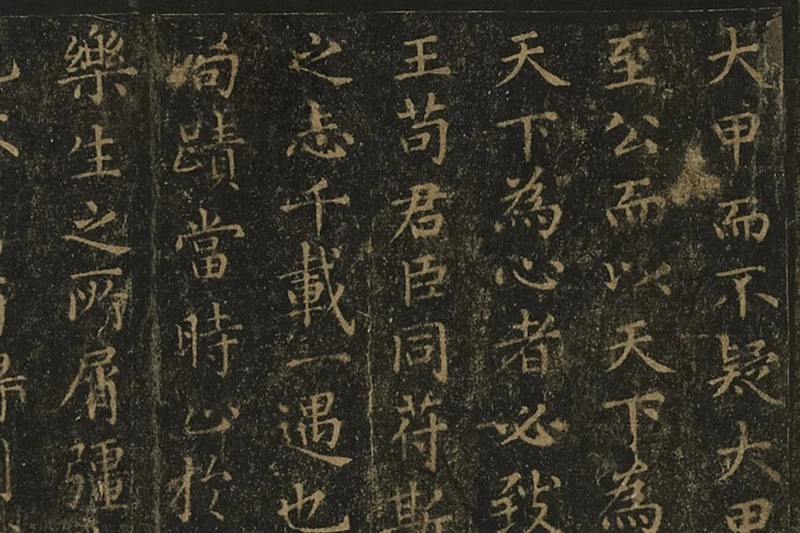 大甲而不疑大甲
至公而以天下為
天下為心者必致
王苟君臣同荷斯
之志千載一遇也
局蹟當時止於
樂生之所屑彊